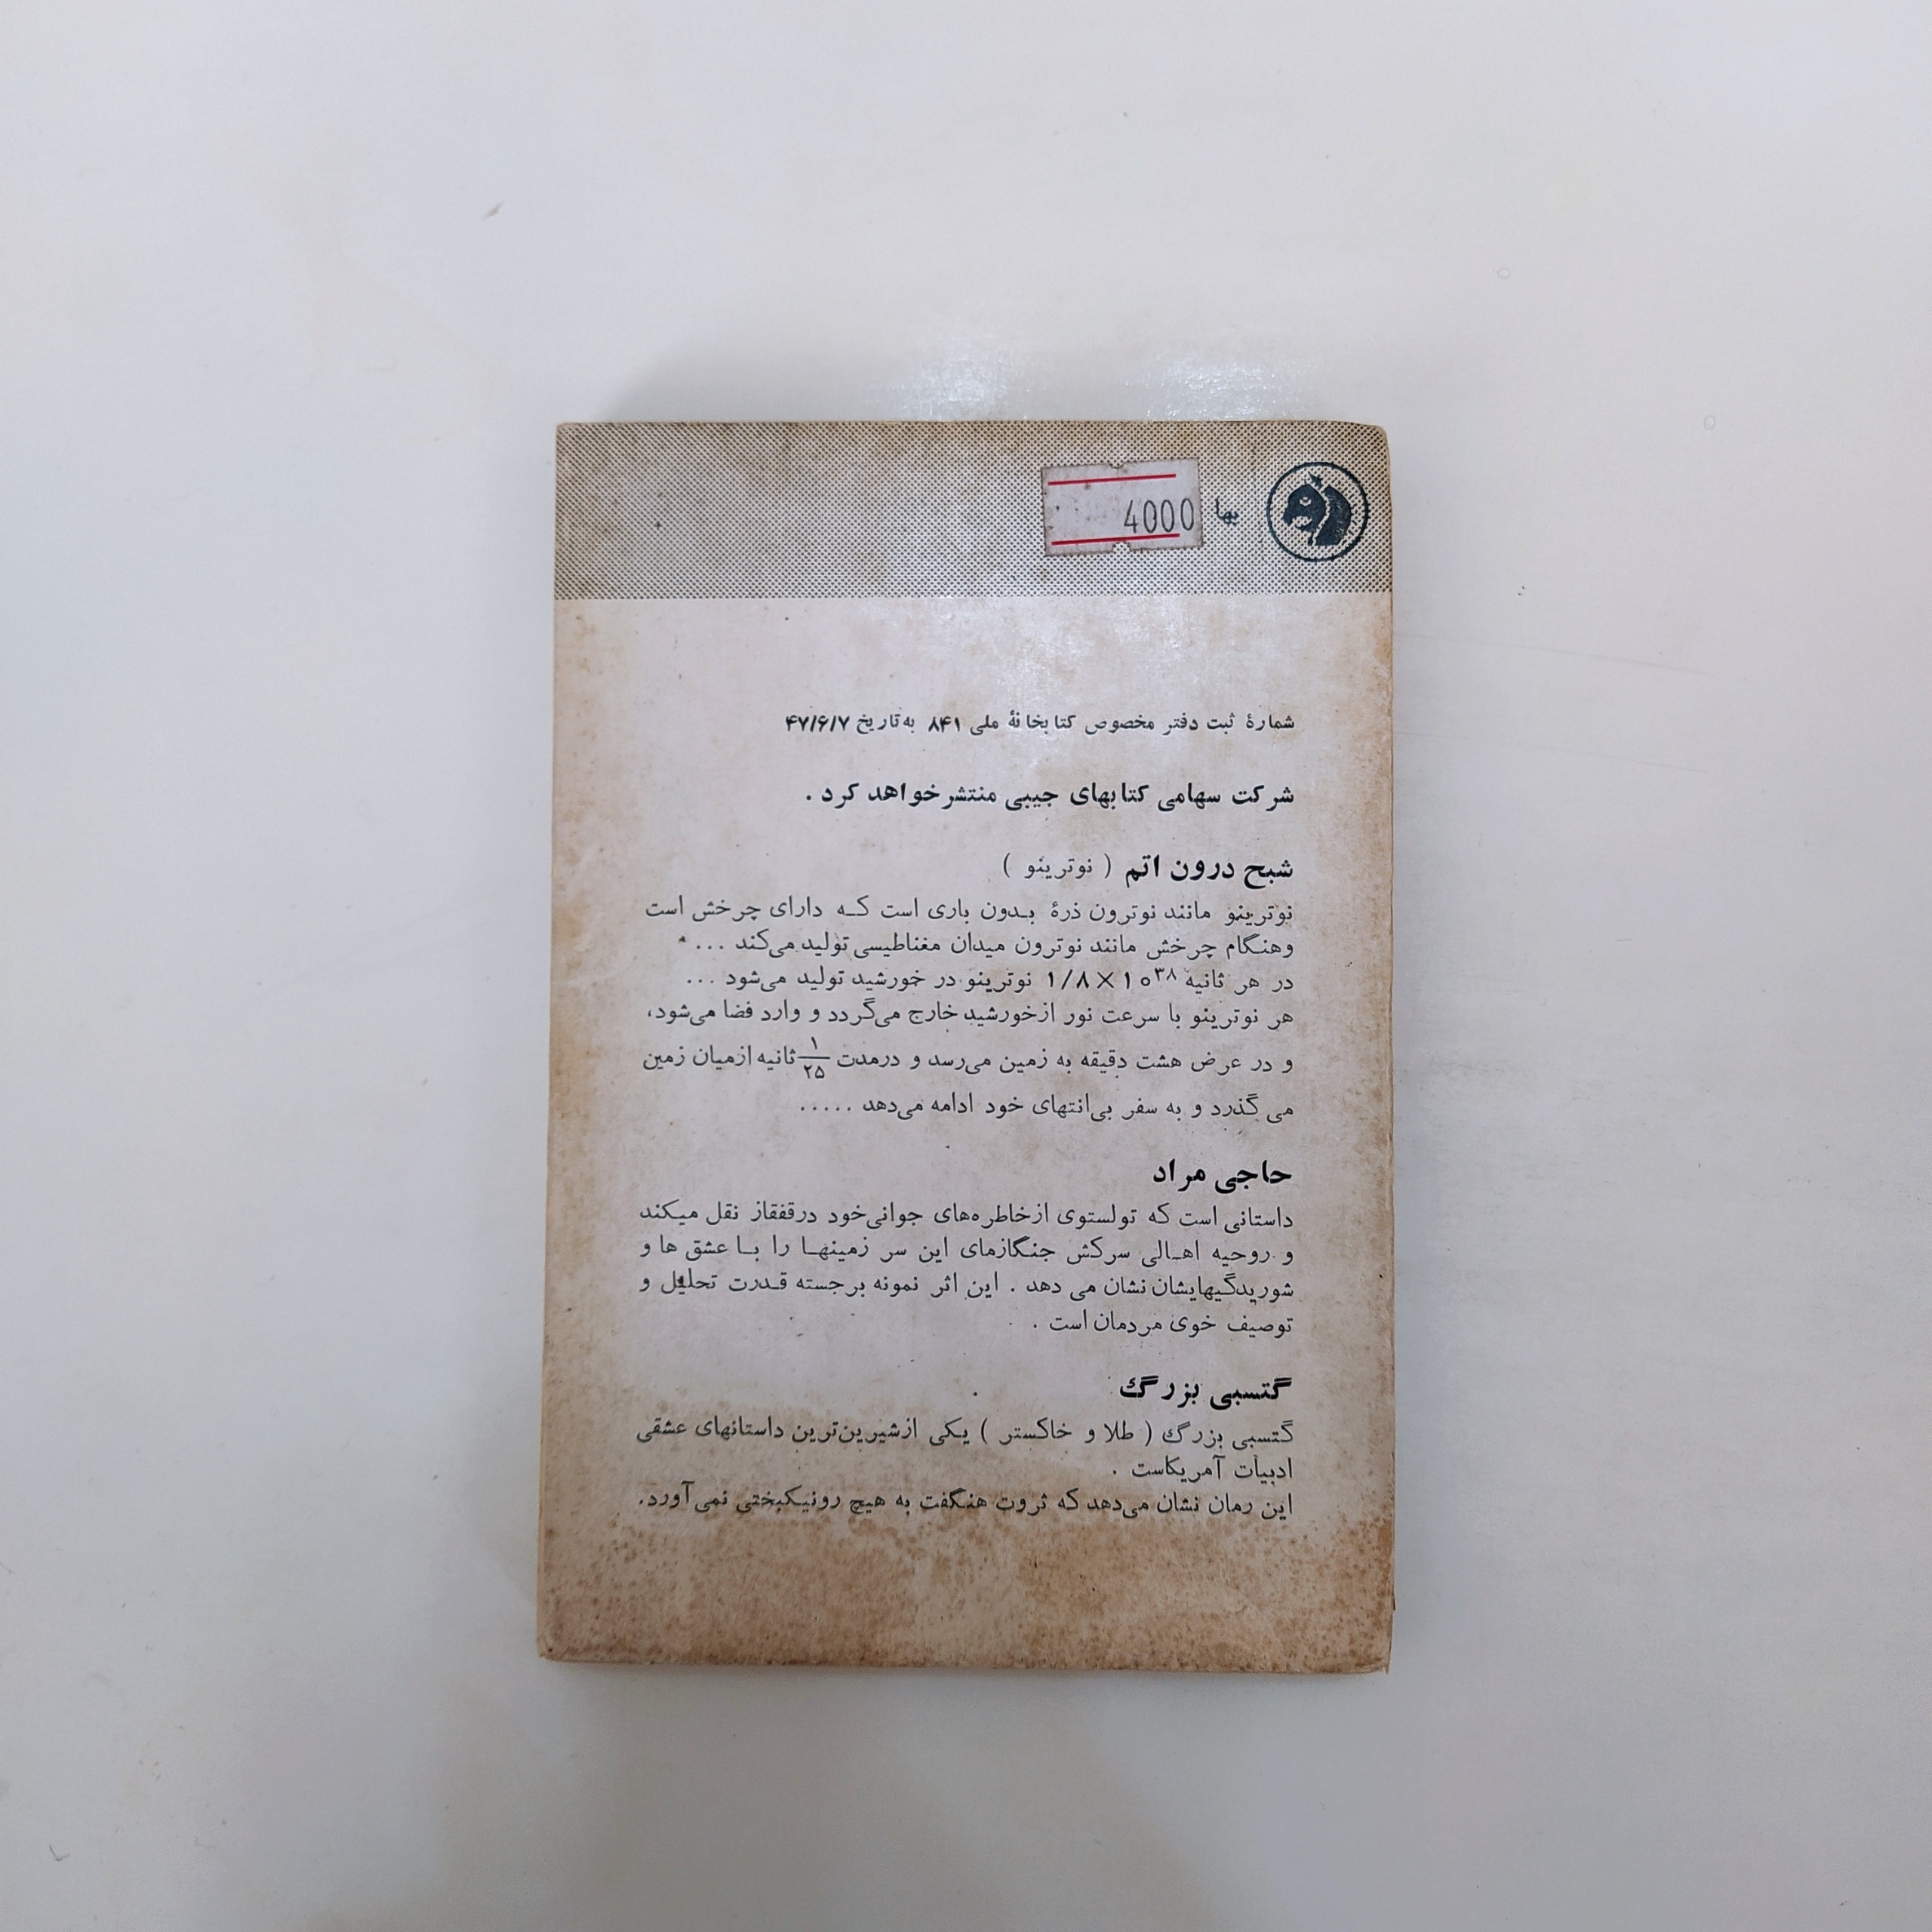 بها 4000
شمارهٔ ثبت دفتر مخصوص کتابخانهٔ ملی ۸۴۱ به تاریخ ۴۷/۶/۷
شرکت سهامی کتابهای جیبی منتشر خواهد کرد .
شبح درون اتم ( نوترینو )
نوترینو مانند نوترون ذرهٔ بدون باری است کـه دارای چرخش است
وهنگام چرخش مانند نوترون میدان مغناطیسی تولید می‌کند ...
در هر ثانیه ۱/۸×۱۰³⁸ نوترینو در خورشید تولید می‌شود ...
هر نوترینو با سرعت نور ازخورشید خارج می‌گردد و وارد فضا می‌شود،
و در عرض هشت دقیقه به زمین می‌رسد و درمدت ۱/۲۵ ثانیه ازمیان زمین
می گذرد و به سفر بی‌انتهای خود ادامه می‌دهد .....
حاجی مراد
داستانی است که تولستوی ازخاطره‌های جوانی‌خود درقفقاز نقل میکند
و روحیه اهـالی سرکش جنگازمای این سر زمینهـا را بـا عشق ها و
شوریدگیهایشان نشان می دهد . این اثر نمونه برجسته قـدرت تحلیل و
توصیف خوی مردمان است .
گتسبی بزرگ
گتسبی بزرگ ( طلا و خاکستر ) یکی ازشیرین‌ترین داستانهای عشقی
ادبیات آمریکاست .
این رمان نشان می‌دهد که ثروت هنگفت به هیچ رونیکبختی نمی‌آورد.